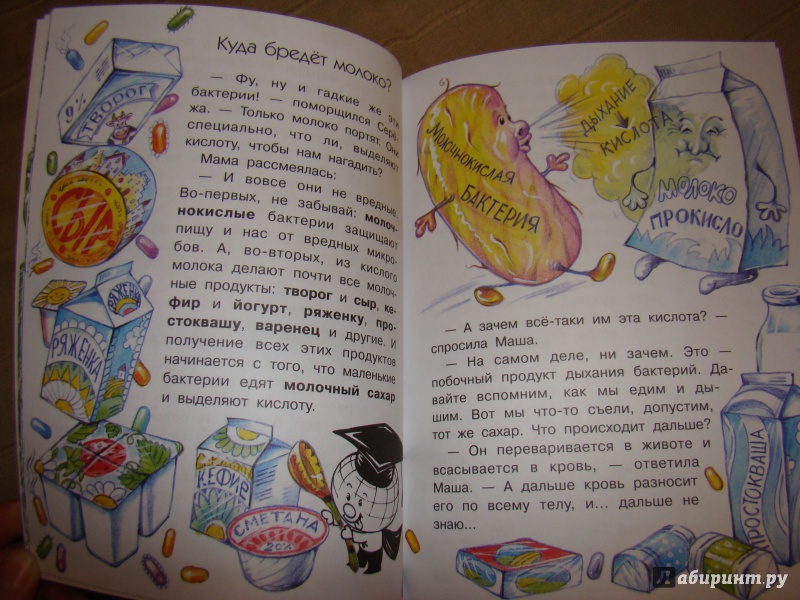 Куда бредёт молоко?
— Фу, ну и гадкие же эти
бактерии! — поморщился Серё-
жа. — Только молоко портят. Они
специально, что ли, выделяют
кислоту, чтобы нам нагадить?
Мама рассмеялась:
— И вовсе они не вредные.
Во-первых, не забывай: молоч-
нокислые бактерии защищают
пищу и нас от вредных микро-
бов. А, во-вторых, из кислого
молока делают почти все молоч-
ные продукты: творог и сыр, ке-
фир и йогурт, ряженку, про-
стоквашу, варенец и другие. И
получение всех этих продуктов
начинается с того, что маленькие
бактерии едят молочный сахар
и выделяют кислоту.
9%
ТВОРОГ
СЫР
РЯЖЕНКА
РЯЖЕНКА
КЕФИР
СМЕТАНА
20%
Молочнокислая
БАКТЕРИЯ
ДЫХАНИЕ
КИСЛОТА
МОЛОКО
ПРОКИСЛО
— А зачем всё-таки им эта кислота? —
спросила Маша.
— На самом деле, ни зачем. Это —
побочный продукт дыхания бактерий. Да-
вайте вспомним, как мы едим и ды-
шим. Вот мы что-то съели, допустим,
тот же сахар. Что происходит дальше?
— Он переваривается в животе и
всасывается в кровь, — ответила
Маша. — А дальше кровь разносит
его по всему телу, и... дальше не
знаю...
ПРОСТОКВАША
Лабиринт.ру